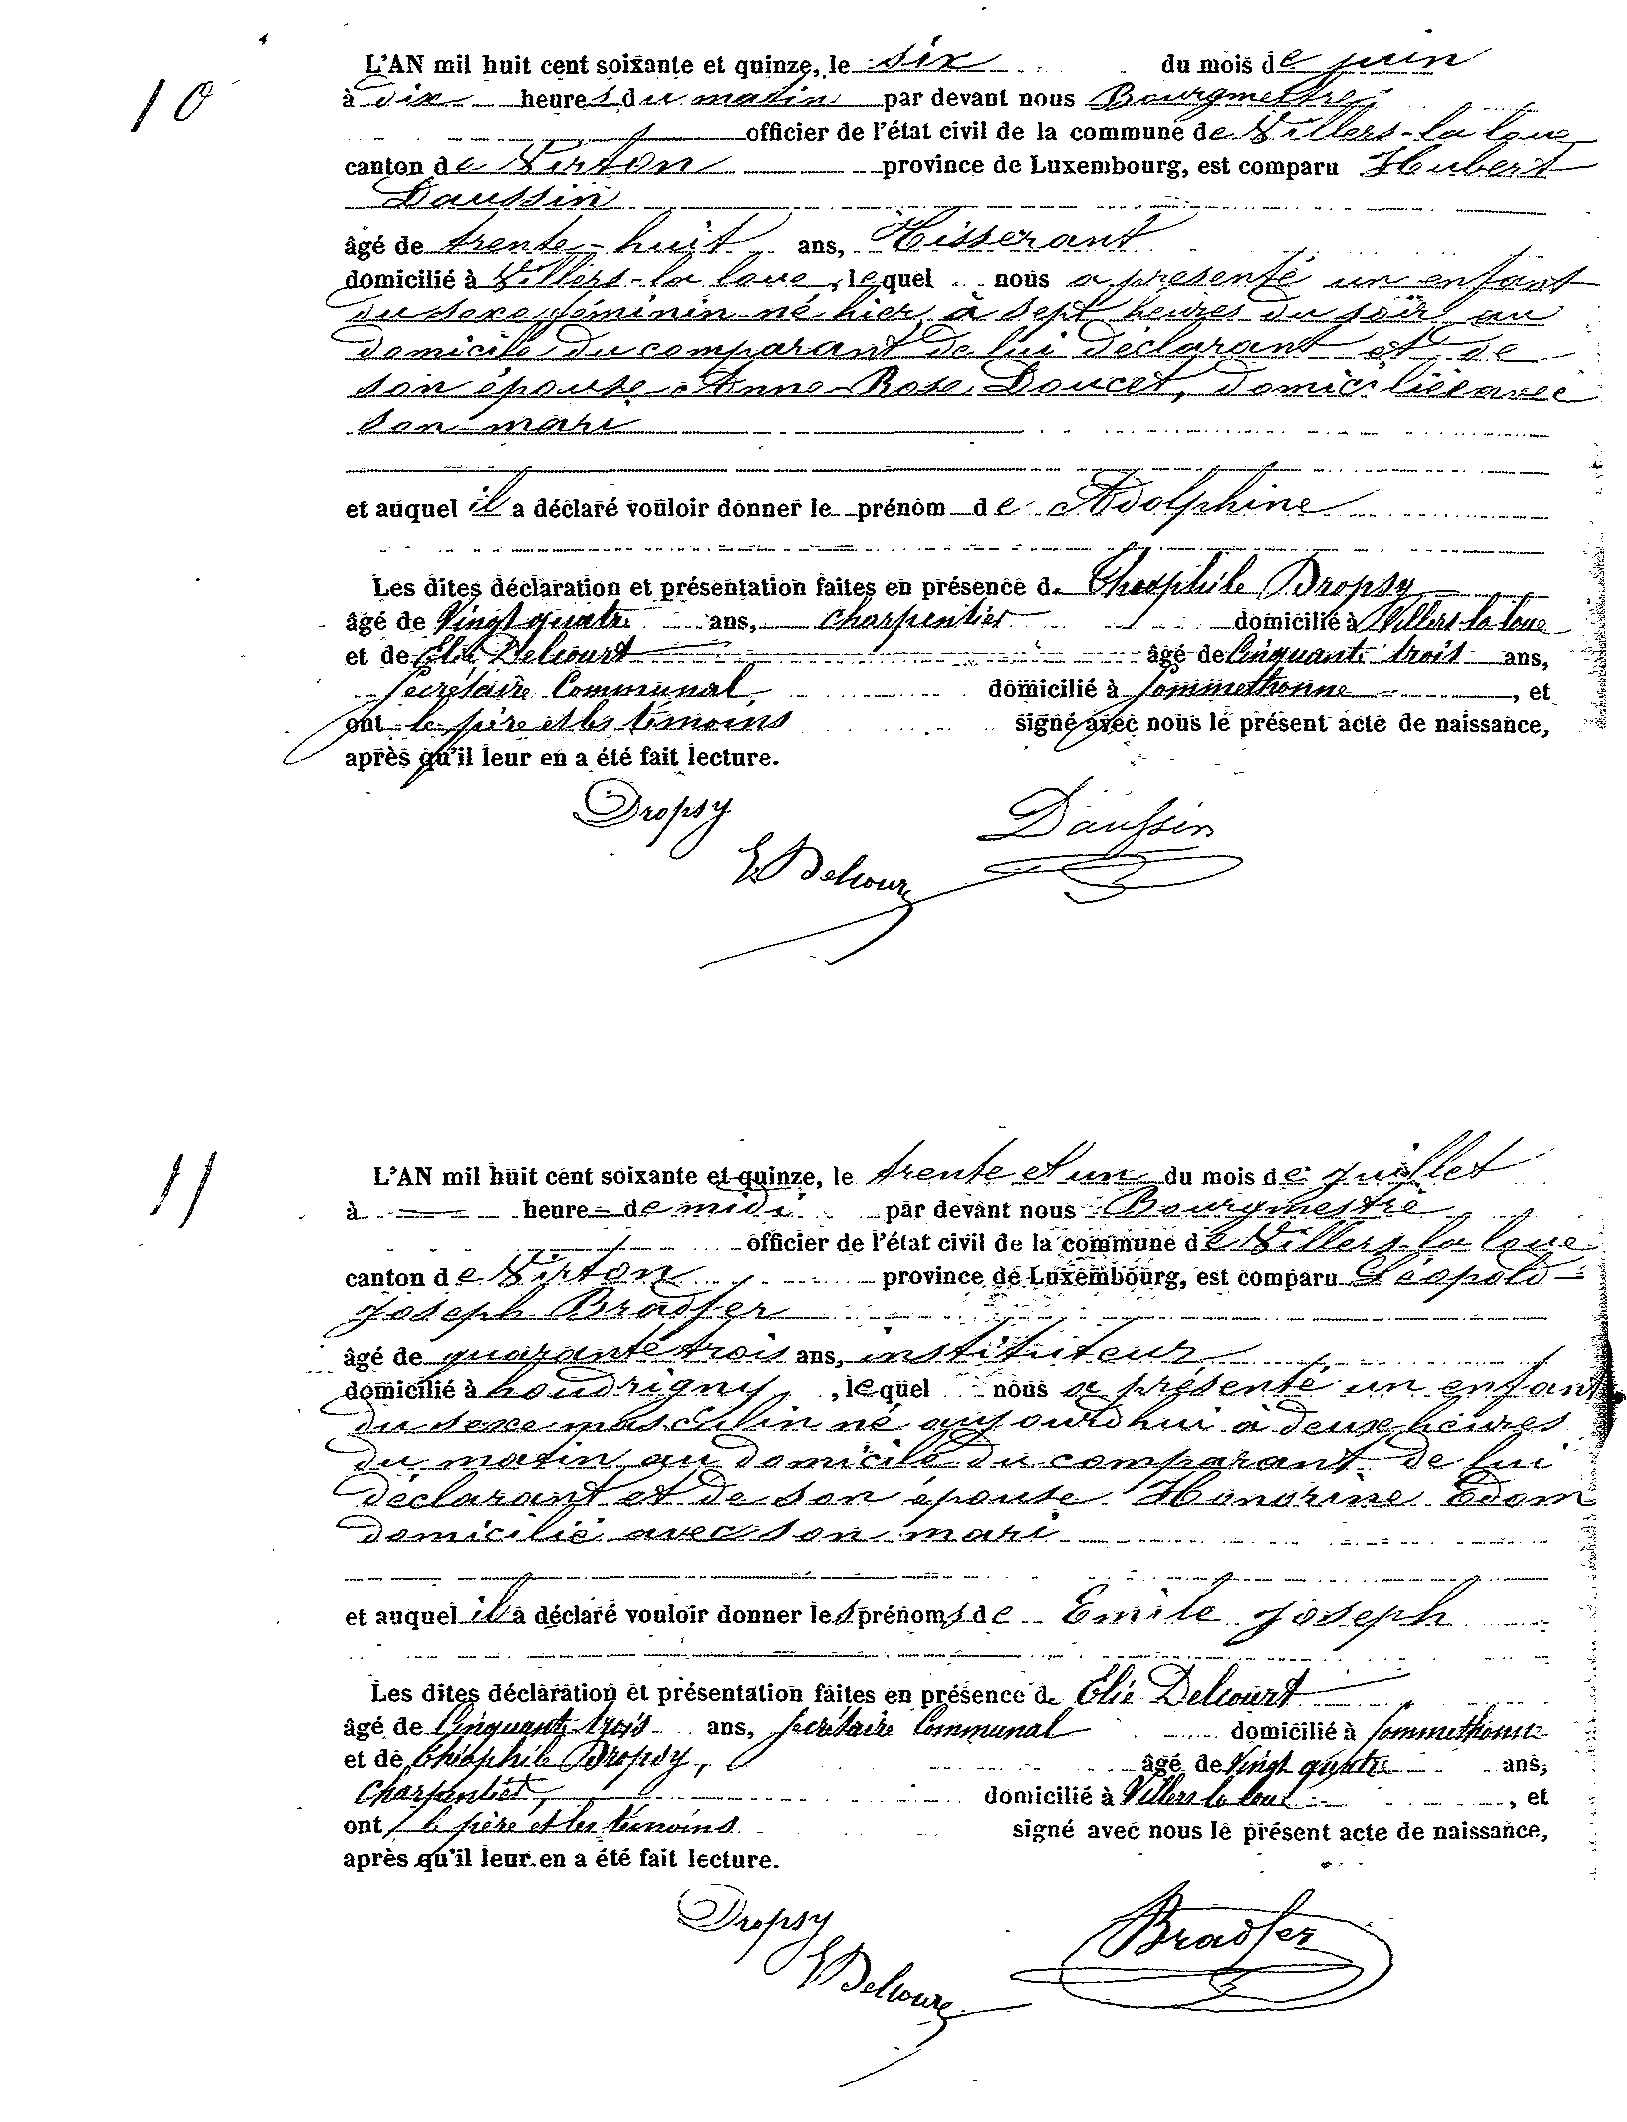 10
L'AN mil huit cent soixante et quinze, le six du mois de juin
à dix heures du matin par devant nous Bourgmestre
officier de l'état civil de la commune de Villers-la loue
canton de Virton province de Luxembourg, est comparu Hubert
Daussin
âgé de trente-huit ans, Tisserant
domicilié à Villers-la loue, lequel nous a présenté un enfant
du sexe féminin né hier à sept heures du soir au
domicile du comparant de lui déclarant et de
son épouse Anne-Rose Doucet, domiciliée avec
son mari
et auquel il a déclaré vouloir donner le prénom de Adolphine
Les dites déclaration et présentation faites en présence d. Théophile Dropsy
âgé de Vingt quatre ans, charpentier domicilié à Villers la loue
et de Elie Delcourt âgé de Cinquante trois ans,
Secrétaire Communal domicilié à Sommethonne, et
ont le père et les témoins signé avec nous le présent acte de naissance,
après qu'il leur en a été fait lecture.
Dropsy Daussin
E Delcourt
11
L'AN mil huit cent soixante et quinze, le trente et un du mois de juillet
à heure de midi par devant nous Bourgmestre
officier de l'état civil de la commune de Villers-la loue
canton de Virton province de Luxembourg, est comparu Léopold
Joseph Bradfer
âgé de quarante trois ans, instituteur
domicilié à houdrigny, lequel nous a présenté un enfant
du sexe masculin né aujourdhui à deux heures
du matin au domicile du comparant de lui
déclarant et de son épouse Honorine Edom
domicilié avec son mari
et auquel il a déclaré vouloir donner les prénoms de Emile Joseph
Les dites déclaration et présentation faites en présence d. Elie Delcourt
âgé de Cinquante trois ans, secrétaire Communal domicilié à Sommethonne
et de Théophile Dropsy, âgé de Vingt quatre ans,
Charpentier, domicilié à Villers la loue, et
ont le père et les témoins signé avec nous le présent acte de naissance,
après qu'il leur en a été fait lecture.
Dropsy Bradfer
E Delcourt